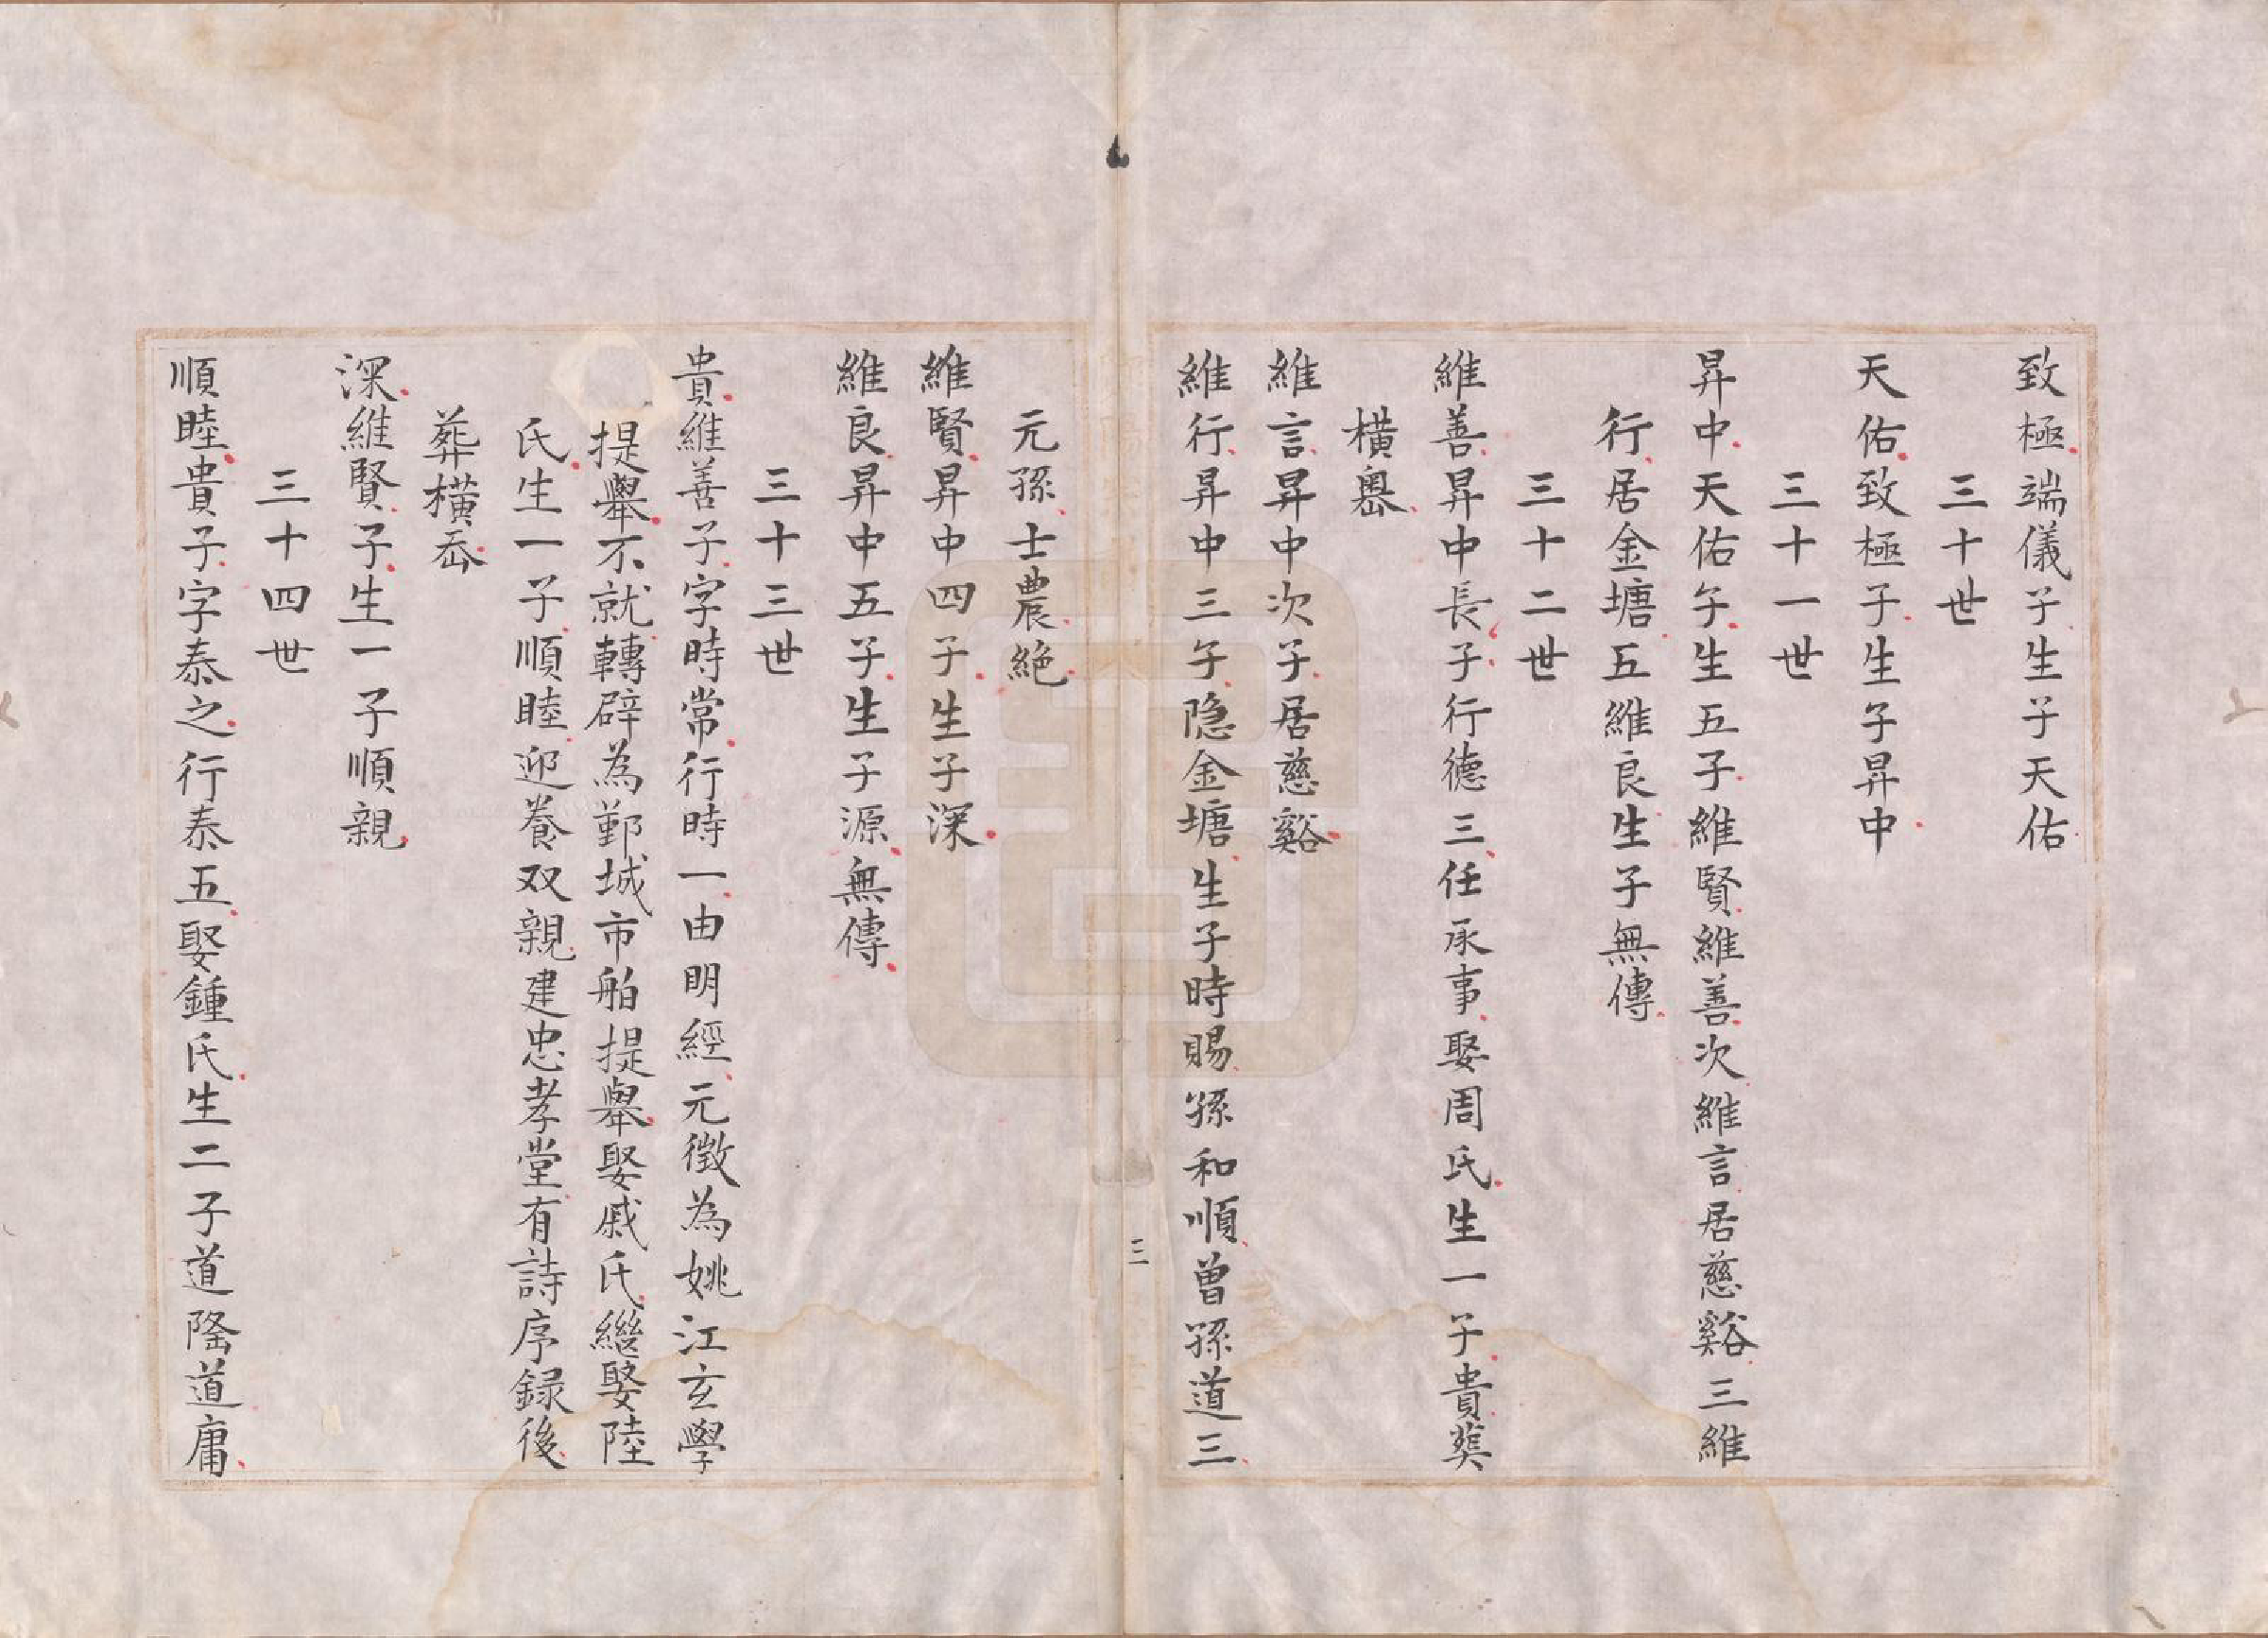 致極端儀子生子天佑
三十世
天佑致極子生子昇中
三十一世
昇中天佑子生五子維賢維善次維言居慈谿三維
行居金塘五維良生子無傳
三十二世
維善昇中長子行德三任承事娶周氏生一子貴葬
橫嶴
維言昇中次子居慈谿
維行昇中三子隐金塘生子時賜孫和順曾孫道三
三
元孫士農絕
維賢昇中四子生子深
維良昇中五子生子源無傳
三十三世
貴維善子字時常行時一由明經元徵為姚江玄學
提舉不就轉辟為鄞城市舶提舉娶戚氏繼娶陸
氏生一子順睦迎養双親建忠孝堂有詩序録後
葬橫岙
深維賢子生一子順親
三十四世
順睦貴子字泰之行泰五娶鍾氏生二子道隆道庸